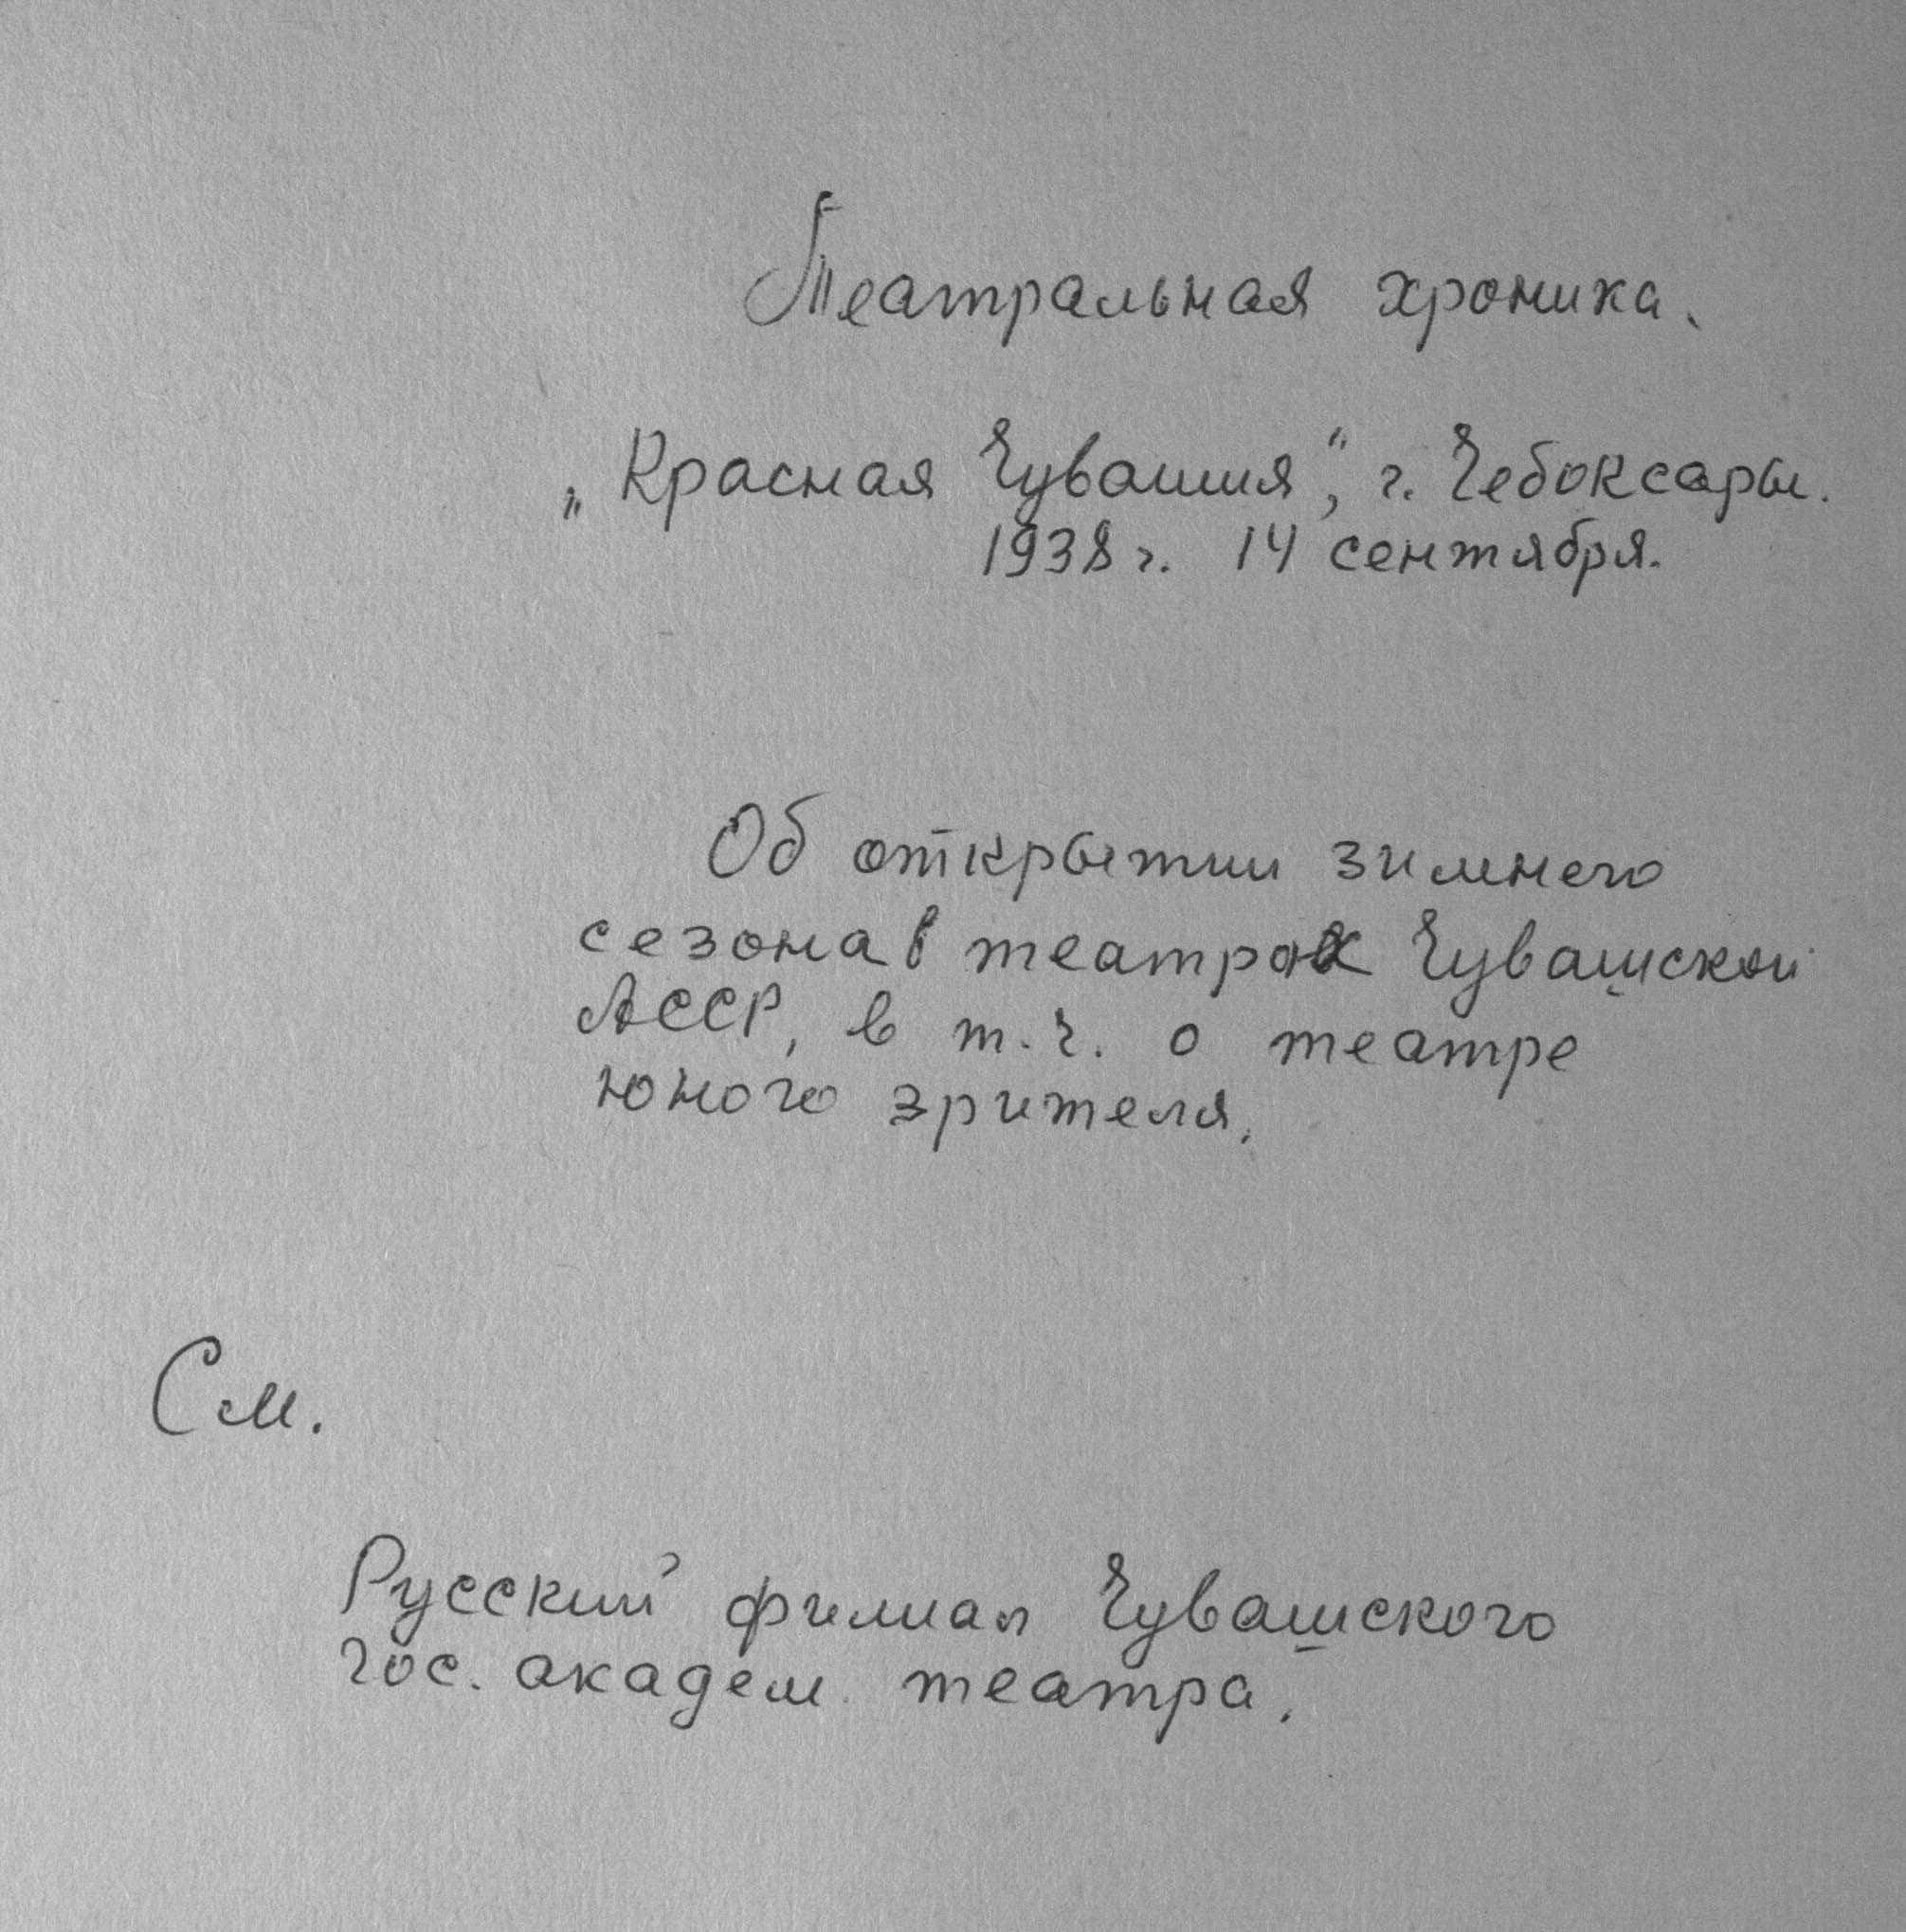 Театральная хроника.
„Красная Чувашия", г. Чебоксары.
1938 г. 14 сентября.
Об открытии зимнего
сезона в театрах Чувашской
АССР, в т.ч. о театре
юного зрителя.
См.
Русский филиал Чувашского
гос. академ. театра.